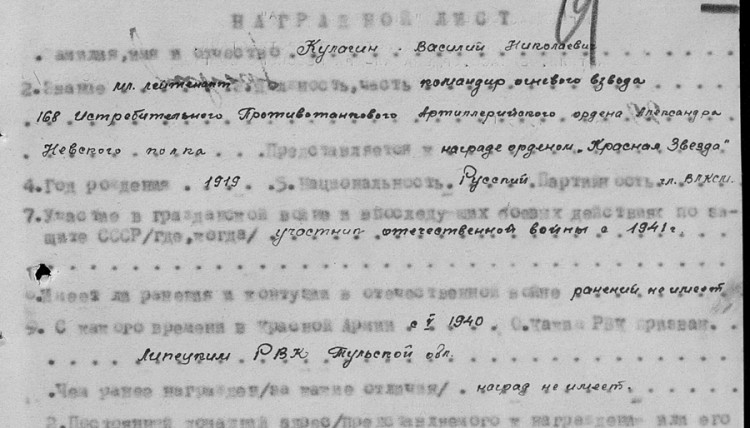 НАГРАДНОЙ ЛИСТ
Фамилия, имя и отчество Кулагин Василий Николаевич
2. Звание мл. лейтенант должность, часть командир огневого взвода
168 Истребительного Противотанкового Артиллерийского ордена Александра
Невского полка Представляется к награде орденом „Красная Звезда"
4. Год рождения 1919 5. Национальность Русский Партийность чл. ВЛКСМ
7. Участие в гражданской войне и впоследущих боевых действиях по за-
щите СССР/где, когда/ участник отечественной войны с 1941 г.
Имеет ли ранения и контузии в отечественной войне ранений не имеет
9. С какого времени в Красной Армии с V 1940. О. Каким РВК призван.
Липецким РВК Тульской обл.
Чем ранее награжден/за какие отличия/ наград не имеет.
2. Постоянной домашний адрес/представляемого к награждению или его